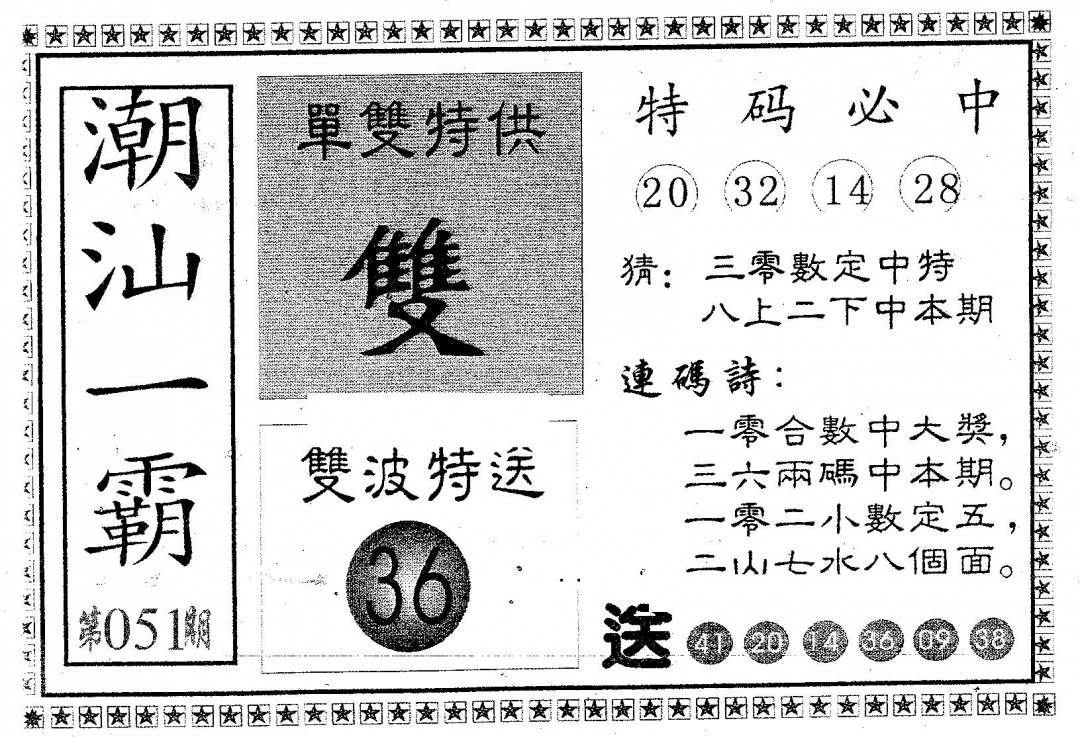 潮汕一霸
第051期
單雙特供
雙
雙波特送
36
特码必中
20 32 14 28
猜：三零數定中特
八上二下中本期
連碼詩：
一零合數中大獎，
三六兩碼中本期。
一零二小數定五，
二山七水八個面。
送 41 20 14 36 09 38